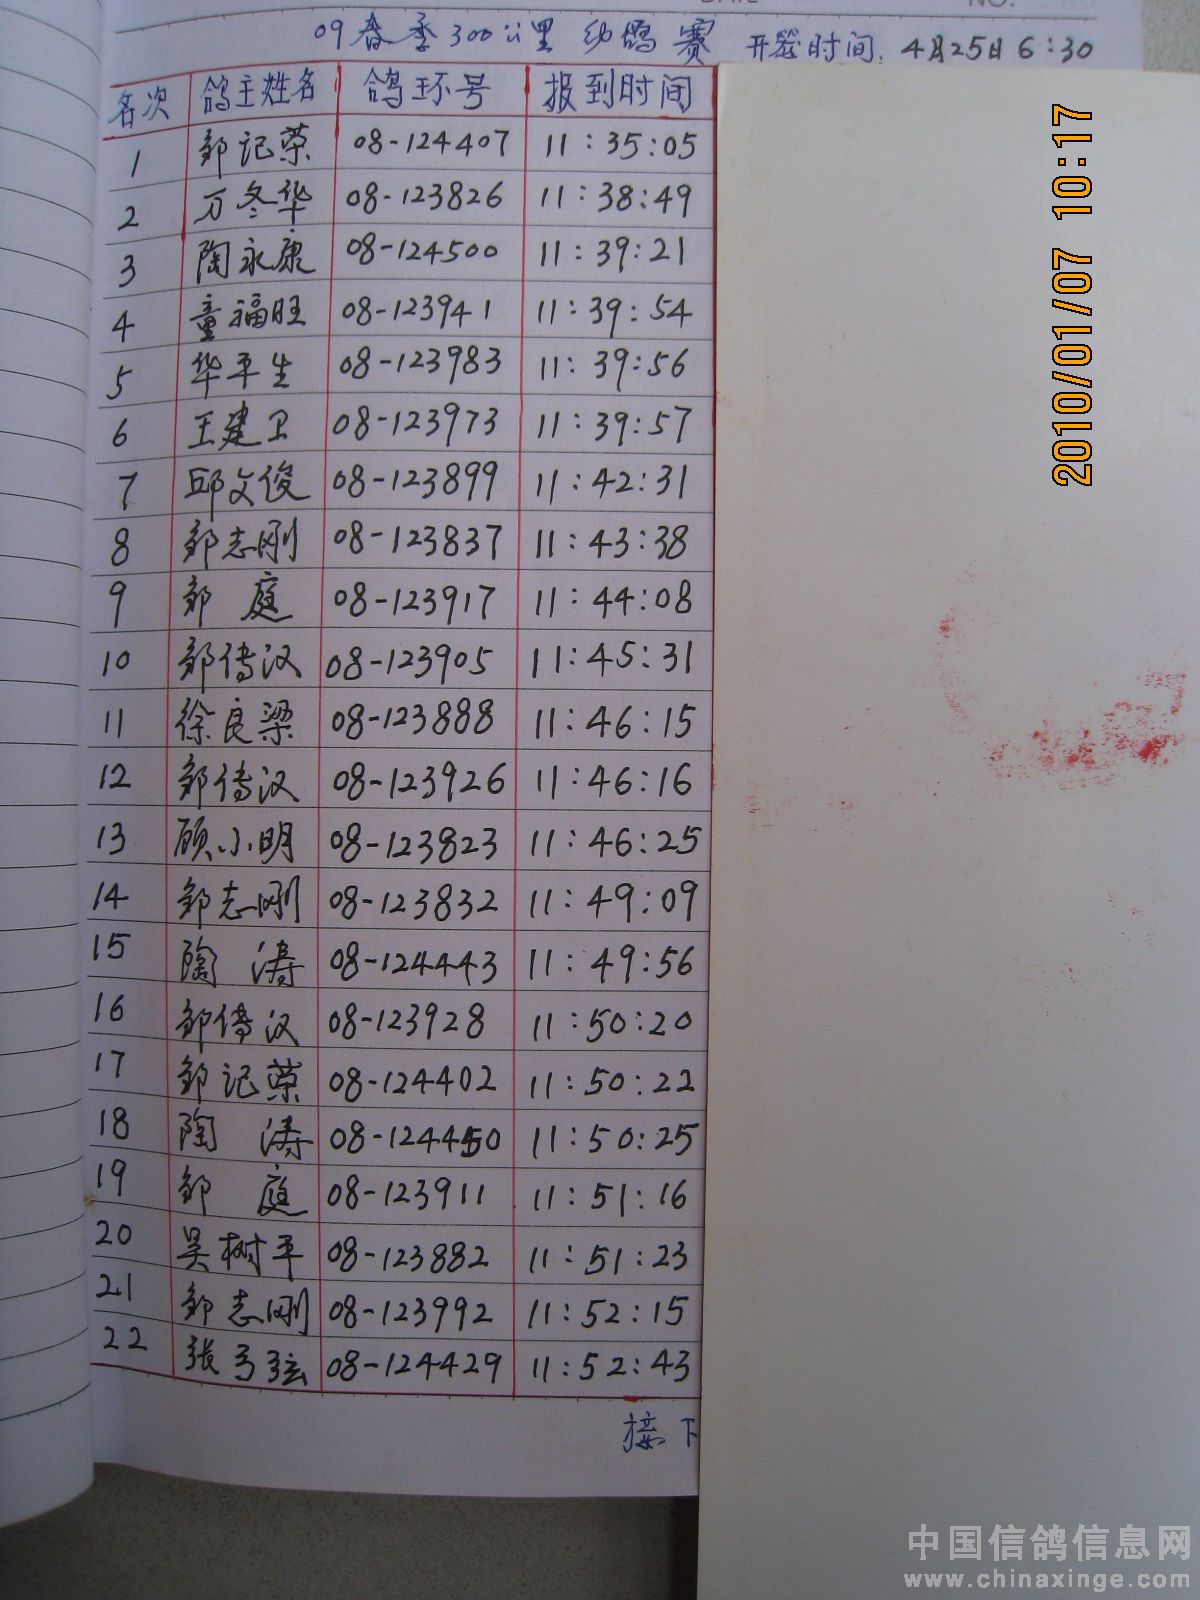 NO.
09春季300公里幼鸽赛 开笼时间. 4月25日6:30
名次 鸽主姓名 鸽环号 报到时间
1 邹记荣 08-124407 11:35:05
2 万冬华 08-123826 11:38:49
3 陶永康 08-124500 11:39:21
4 童福旺 08-123941 11:39:54
5 华平生 08-123983 11:39:56
6 王建卫 08-123973 11:39:57
7 邱文俊 08-123899 11:42:31
8 邹志刚 08-123837 11:43:38
9 邹庭 08-123917 11:44:08
10 邹传汉 08-123905 11:45:31
11 徐良梁 08-123888 11:46:15
12 邹传汉 08-123926 11:46:16
13 顾小明 08-123823 11:46:25
14 邹志刚 08-123832 11:49:09
15 陶涛 08-124443 11:49:56
16 邹传汉 08-123928 11:50:20
17 邹记荣 08-124402 11:50:22
18 陶涛 08-124450 11:50:25
19 邹庭 08-123911 11:51:16
20 吴树平 08-123882 11:51:23
21 邹志刚 08-123992 11:52:15
22 张弓弦 08-124429 11:52:43
接下
2010/01/07 10:17
中国信鸽信息网
www.chinaxinge.com